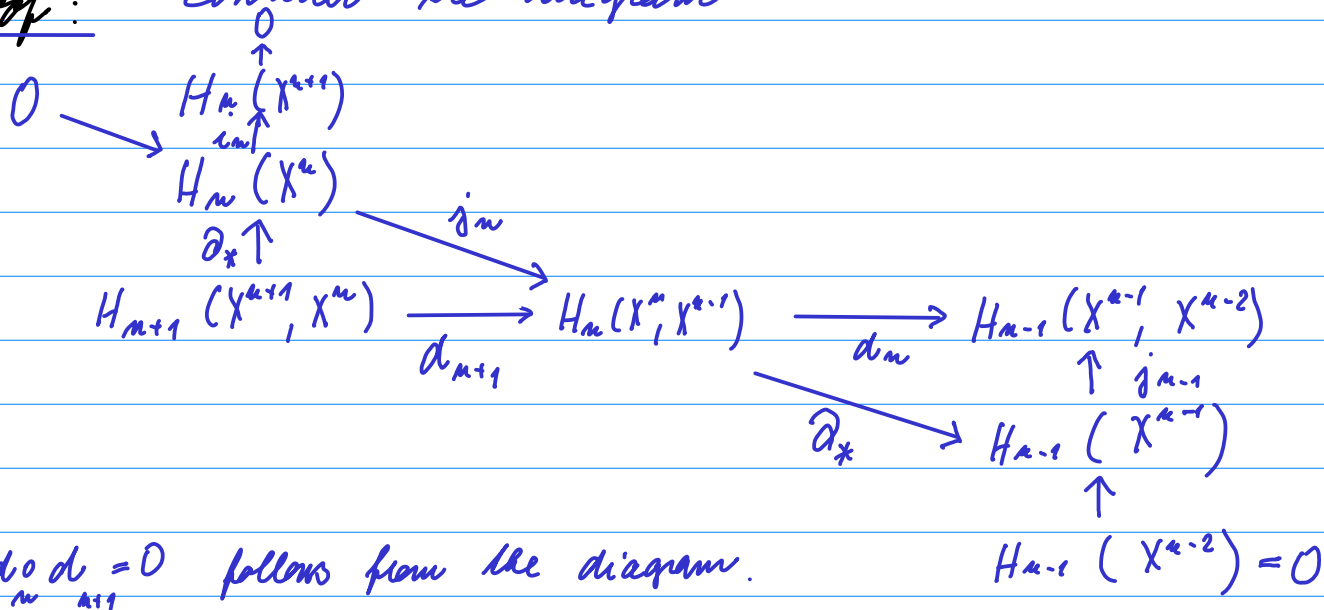 Consider the diagram
0
↑
0 → H_n (X^{n+1})
i_n ↑
H_n (X^n)
∂_* ↑ j_n
H_{n+1} (X^{n+1}, X^n) → H_n (X^n, X^{n-1}) → H_{n-1} (X^{n-1}, X^{n-2})
d_{n+1} d_n ↑ j_{n-1}
∂_* H_{n-1} (X^{n-1})
↑
d_n ∘ d_{n+1} = 0 follows from the diagram. H_{n-1} (X^{n-2}) = 0